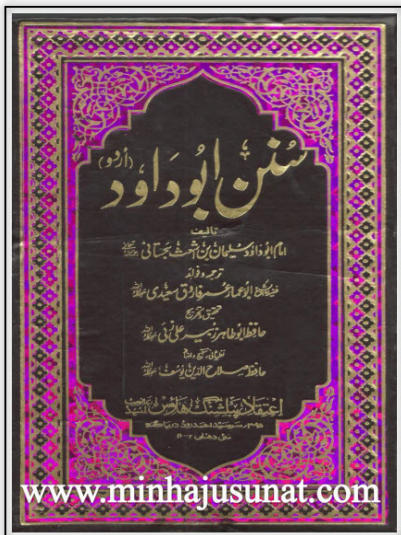 سنن ابوداود (اُردو)
تالیف
امام ابوداود سلیمان بن اشعث سجستانی
ترجمہ و فوائد
ابوعمار عمر فاروق سعیدی
تحقیق و تخریج
حافظ ابوطاہر زبیر علی زئی
حافظ صلاح الدین یوسف
اعتقاد پبلشنگ ہاؤس
www.minhajusunat.com